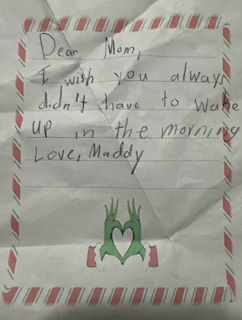 Dear Mom,
I wish you always
didn't have to wake
up in the morning
Love, Maddy